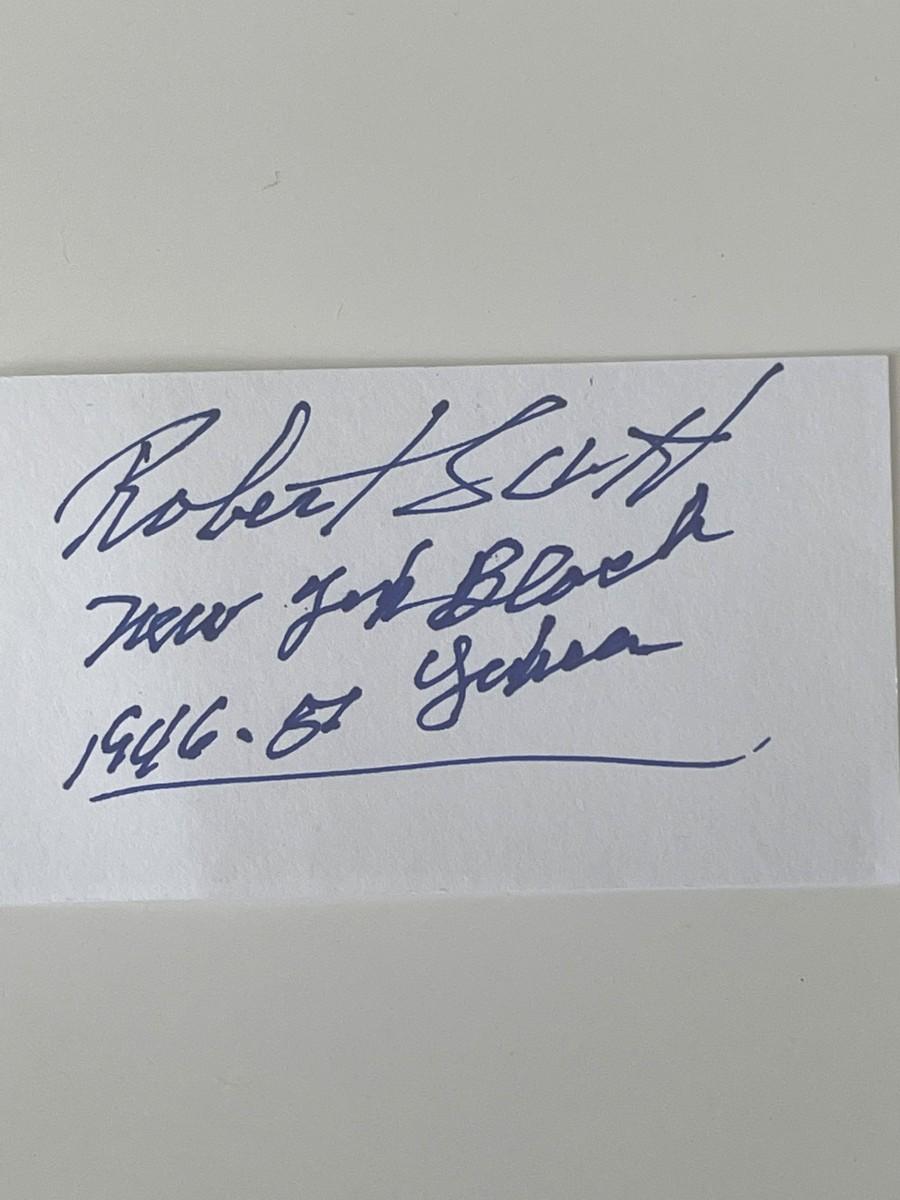 Robert Scott
New York Black
1946. 51 Yankees